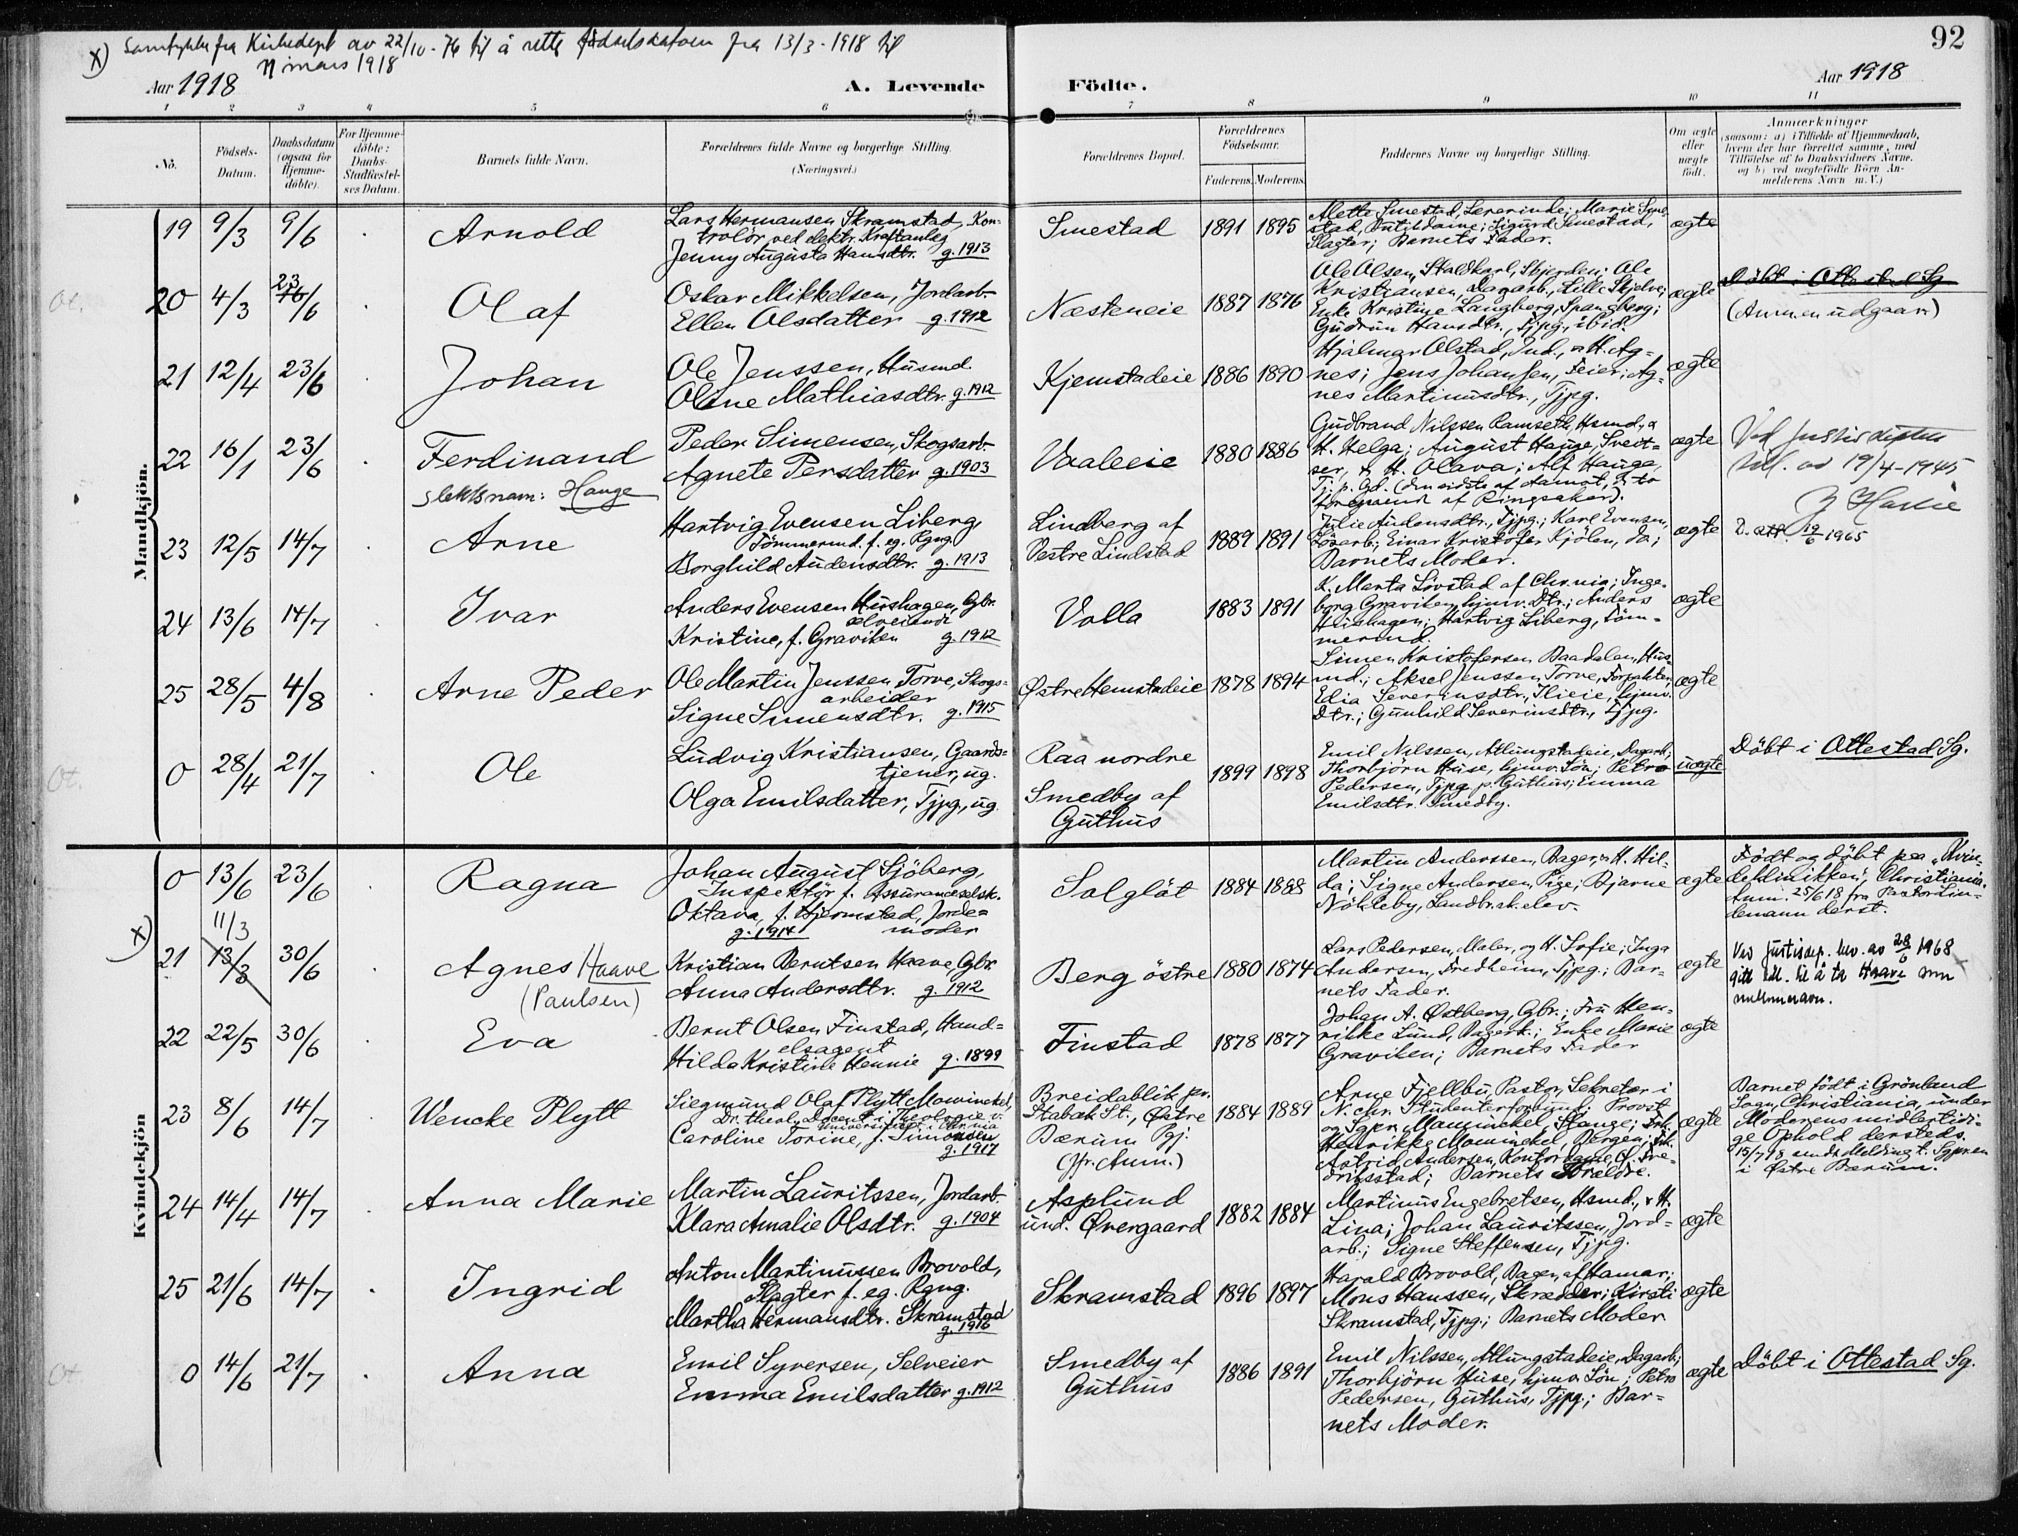 92
x) Samtykke fra Kirkedept av 22/10-76 til å rette fødselsdatoen fra 13/3-1918 til
11 mars 1918
Aar 1918 A. Levende Födte. Aar 1918
1 2 3 4 5 6 7 8 9 10 11
No. Födsels-Datum. Daabsdatum (ogsaa for Hjemme-döbte). For Hjemme-döbte: Daabs-Stadfæstel-ses Datum. Barnets fulde Navn. Forældrenes fulde Navne og borgerlige Stilling. (Næringsvei.) Forældrenes Bopæl. Forældrenes Födselsaar. Faderens. Moderens. Faddernes Navne og borgerlige Stilling. Om ægte eller uægte födt. Anmærkninger (saasom: a) i Tilfælde af Hjemmedaab, hvem der har forrettet samme, med Tilföielse af to Daabsvidners Navne, og b) ved uægtefödte Börn An-melderens Navn m. V.)
Mandkjön.
19 9/3 9/6 Arnold
Lars Hermansen Skramstad, Kon-
trolör ved elektr. Kraftanlæg
Jenny Augusta Hansdtr. g. 1913
Smestad 1891 1895
Mette Smestad, Lærerinde; Marie Sme-
stad, Butikdame; Sigurd Smestad,
Slagter; Barnets Fader.
ægte
Ot. 20 4/3 23/6 Olaf
Oskar Mikkelsen, Jordarb.
Ellen Olsdatter g. 1912
Næsteneie 1887 1876
Ole Olsen, Staldkarl, Stjerden; Ole
Kristiansen, Dagarb., Lille Skjelve;
Enke Kristine Langberg, Spangberg;
Gudrun Hansdtr., Tjpg., ibid.
ægte
Döbt i Ottestad Sg.
(Anm. en udgaar)
21 12/4 23/6 Johan
Ole Jenssen, Husmd.
Oline Mathiasdtr. g. 1912
Kjemstadeie 1886 1890
Hjalmar Olstad, Ind., & H. Ag-
nes; Jens Johansen, Feier; Ag-
nes Martinusdtr., Tjpg.
ægte
22 16/1 23/6 Ferdinand
slektsnam: Hauge
Peder Simensen, Skogsarb.
Agnete Persdatter g. 1903
Vaaleeie 1880 1886
Gudbrand Nilssen Ramseth, Hsmd., &
H. Helga; August Hauge, Sveit-
ser, & H. Olava; Alf Hauge,
Tj. p. Gd. (den sidste af Hamar, de to
foregaaend af Ringsaker).
ægte
Ved Justisdeptets
till. av 19/4-1945
23 12/5 14/7 Arne
Hartvig Evensen Liberg
Tömmermd. f. eg. Rgng.
Borghild Audensdtr. g. 1913
Lindberg af
Vestre Lindstad 1889 1891
Julie Audensdtr., Tjpg.; Karl Evensen,
Lösarb.; Einar Kristofer Kjölen, do;
Barnets Moder.
ægte
D. att 19/6 1965
24 13/6 14/7 Ivar
Anders Evensen Hushagen, Gbr.
selveiende
Kristine, f. Graviken g. 1912
Volla 1883 1891
K. Marta Lövstad af Chr.nia; Inge-
borg Graviken, hjmv. Dtr.; Anders
Hushagen; Hartvig Liberg, Töm-
mermd.
ægte
25 28/5 4/8 Arne Peder
Ole Martin Jenssen Torve, Skogs-
arbeider
Signe Simensdtr. g. 1915
Østre Hemstadeie 1878 1894
Simen Kristofersen Baadalen, Hus-
md.; Aksel Jenssen Torve, Forpakter;
Edia Severinsdtr., Ilieie, hjmv.
Dtr.; Gunhild Severinsdtr., Tjpg.
ægte
Ot. 0 28/4 21/7 Ole
Ludvig Kristiansen, Gaards-
tjener, ug.
Olga Emilsdatter, Tjpg., ug.
Raa nordre
Smedby af
Guthus 1899 1898
Emil Nilssen, Atlungstadeie, Dagarb.;
Thorbjörn Huse, hjmv. Sön; Petra
Pedersen, Tjpg. p. Guthus; Emma
Emilsdtr. Smedby.
uægte
Döbt i Ottestad Sg.
Kvindekjön
0 13/6 23/6 Ragna
Johan August Sjöberg,
Inspektör f. Assuranceselsk.
Oktava, f. Hjermstad, Jorde-
g. 1914 moder
Solglöt 1884 1888
Martin Anderssen, Bager, & H. Hil-
da; Signe Andersen, Pige; Bjarne
Nökleby, Landbr.sk.elev.
ægte
Födt og döbt paa "Kvin-
deklinikken", Christiania.
Anm. 25/6 18 fra Pastor Lin-
demann derst.
x) 21 11/3 13/3 30/6 Agnes Haave
(Paulsen)
Kristian Berntsen Haave, Gbr.
Anna Andersdtr. g. 1912
Berg östre 1880 1874
Lars Pedersen, Maler, og H. Sofie; Inga
Andersen, Fredheim, Tjpg.; Bar-
nets Fader.
ægte
Ved Justisdep. bev. av 28/6 1968
gitt till. til å ta Haave som
mellomnavn.
22 22/5 30/6 Eva
Bernt Olsen Finstad, Hand-
elsagent
Hilda Kristine Hennie g. 1899
Finstad 1878 1877
Johan A. Østberg, Gbr.; Fru Hen-
rikke Lund, Bagersk.; Enke Marie
Graviken; Barnets Fader
ægte
23 8/6 14/7 Wencke Plytt
Siegmund Olaf Plytt Mowinckel,
Dr. theol., Docent i Theologie v.
Universitetet i Chr.nia
Caroline Torine, f. Simonsen
g. 1917
Breidablik pr.
Stabæk St., Østre
Bærum Pgj.
(Jfr. Anm.) 1884 1889
Arne Fjellbu, Pastor, Sekretær i
N. chr. Studenterforbund; Provst
og Sgpr. Mowinckel, Stange; Frk.
Henrikke Mowinckel, Bergen; Frk.
Astrid Andersen, Kontordame, Ø. Fre-
driksstad; Barnets Forældre.
ægte
Barnet födt i Grönland
Sogn, Christiania, under
Moderens midlertidi-
ge Ophold dersteds.
15/7 18 sendt Melding t. Sgpr.en
i Østre Bærum.
24 14/4 14/7 Anna Marie
Martin Lauritssen, Jordarb.
Klara Amalie Olsdtr. g. 1904
Asplund
und. Øvergaard 1882 1884
Martinus Engebretsen, Hsmd., & H.
Lina; Johan Lauritssen, Jord-
arb.; Signe Steffensen, Tjpg.
ægte
25 21/6 14/7 Ingrid
Anton Martinussen Brovold,
Slagter f. eg. Rgng.
Martha Hermansdtr. Skramstad
g. 1916
Skramstad 1896 1897
Harald Brovold, Bager, af Hamar;
Mons Hanssen, Skrædder; Kirsti
Skramstad, Tjpg.; Barnets Moder
ægte
Ot 0 14/6 21/7 Anna
Emil Syversen, Selveier
Emma Emilsdatter g. 1912
Smedby af
Guthus 1886 1891
Emil Nilssen, Atlungstadeie, Dagarb.;
Thorbjörn Huse, hjmv. Sön; Petra
Pedersen, Guthus, Tjpg.; Bar-
nets Moder.
ægte
Döbt i Ottestad Sg.